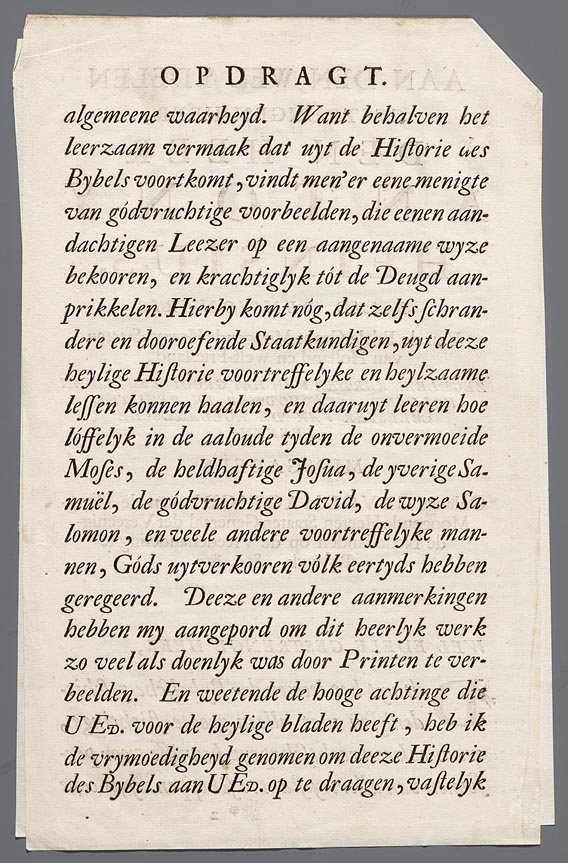 OPDRAGT.
algemeene waarheyd. Want behalven het
leerzaam vermaak dat uyt de Hiſtorie des
Bybels voortkomt, vindt men'er eene menigte
van gódvruchtige voorbeelden, die eenen aan-
dachtigen Leezer op een aangenaame wyze
bekooren, en krachtiglyk tót de Deugd aan-
prikkelen. Hierby komt nóg, dat zelfs ſchran-
dere en dooroefende Staatkundigen, uyt deeze
heylige Hiſtorie voortreffelyke en heylzaame
leſſen konnen haalen, en daaruyt leeren hoe
lóffelyk in de aaloude tyden de onvermoeide
Moſes, de heldhaftige Joſua, de yverige Sa-
muël, de gódvruchtige David, de wyze Sa-
lomon, en veele andere voortreffelyke man-
nen, Góds uytverkooren vólk eertyds hebben
geregeerd. Deeze en andere aanmerkingen
hebben my aangepord om dit heerlyk werk
zo veel als doenlyk was door Printen te ver-
beelden. En weetende de hooge achtinge die
U ED. voor de heylige bladen heeft, heb ik
de vrymoedigheyd genomen om deeze Hiſtorie
des Bybels aan U ED. op te draagen, vaſtelyk